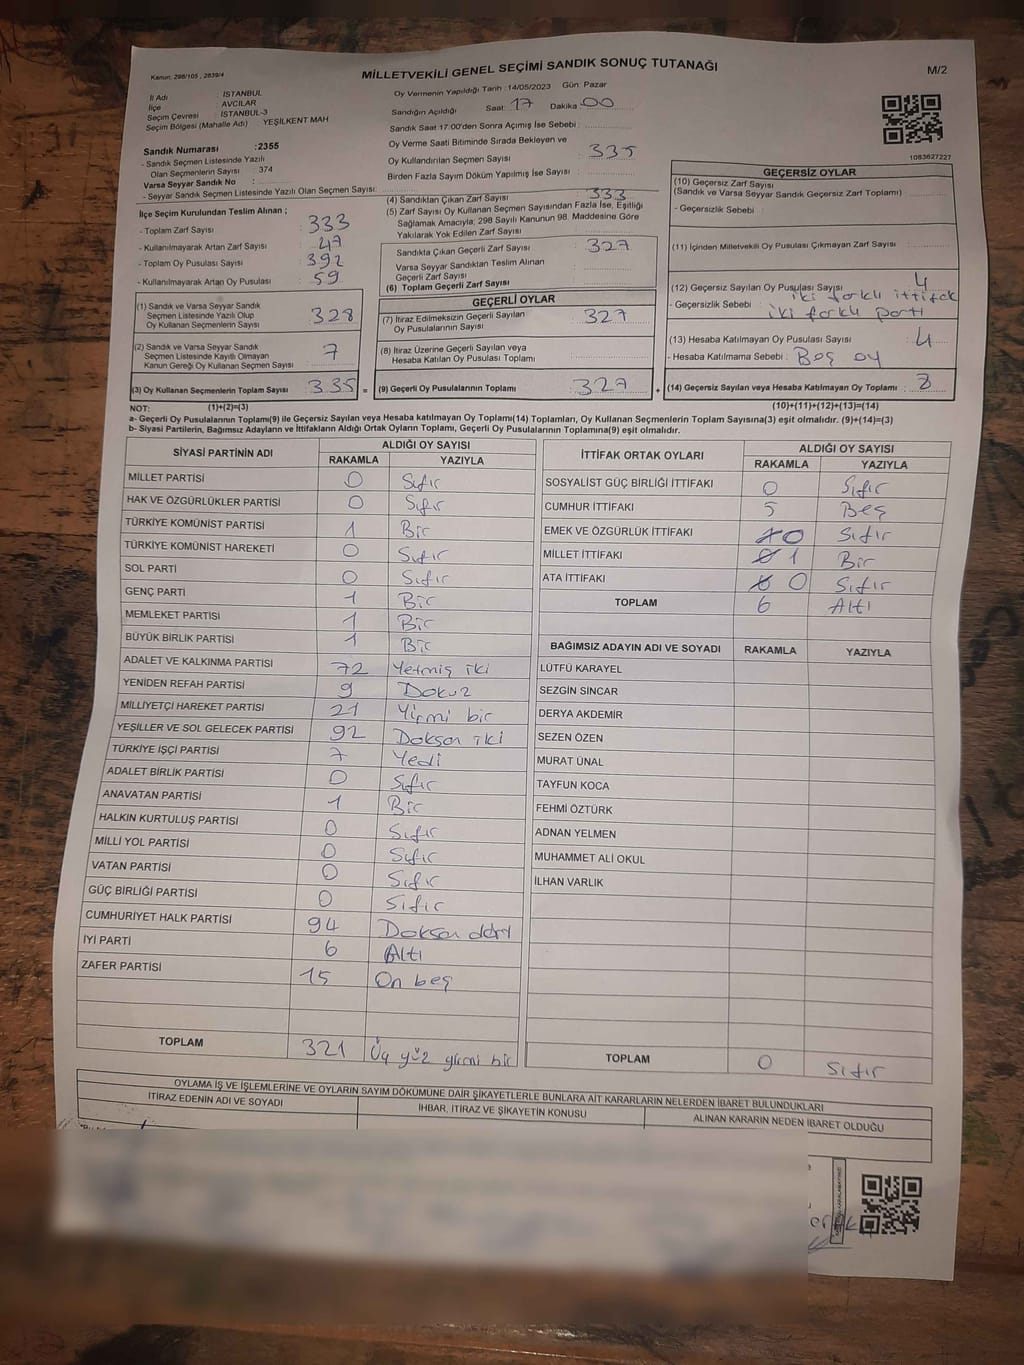 Kanun: 298/105 , 2839/4
MİLLETVEKİLİ GENEL SEÇİMİ SANDIK SONUÇ TUTANAĞI
M/2
İl Adı : İSTANBUL
İlçe : AVCILAR
Seçim Çevresi : İSTANBUL-3
Seçim Bölgesi (Mahalle Adı) : YEŞİLKENT MAH
Sandık Numarası :2355
- Sandık Seçmen Listesinde Yazılı
Olan Seçmenlerin Sayısı : 374
Varsa Seyyar Sandık No :
- Seyyar Sandık Seçmen Listesinde Yazılı Olan Seçmen Sayısı:
İlçe Seçim Kurulundan Teslim Alınan ;
- Toplam Zarf Sayısı : 333
- Kullanılmayarak Artan Zarf Sayısı : 47
- Toplam Oy Pusulası Sayısı : 392
- Kullanılmayarak Artan Oy Pusulası : 59
(1) Sandık ve Varsa Seyyar Sandık
Seçmen Listesinde Yazılı Olup
Oy Kullanan Seçmenlerin Sayısı : 328
(2) Sandık ve Varsa Seyyar Sandık
Seçmen Listesinde Kayıtlı Olmayan
Kanun Gereği Oy Kullanan Seçmen Sayısı : 7
(3) Oy Kullanan Seçmenlerin Toplam Sayısı : 335 =
(1)+(2)=(3)
Oy Vermenin Yapıldığı Tarih :14/05/2023 Gün: Pazar
Sandığın Açıldığı Saat: 17 Dakika: 00
Sandık Saat 17:00'den Sonra Açılmış İse Sebebi :
Oy Verme Saati Bitiminde Sırada Bekleyen ve
Oy Kullandırılan Seçmen Sayısı : 335
Birden Fazla Sayım Döküm Yapılmış İse Sayısı :
(4) Sandıktan Çıkan Zarf Sayısı : 333
(5) Zarf Sayısı Oy Kullanan Seçmen Sayısından Fazla İse, Eşitliği
Sağlamak Amacıyla; 298 Sayılı Kanunun 98. Maddesine Göre
Yakılarak Yok Edilen Zarf Sayısı :
Sandıkta Çıkan Geçerli Zarf Sayısı : 327
Varsa Seyyar Sandıktan Teslim Alınan
Geçerli Zarf Sayısı :
(6) Toplam Geçerli Zarf Sayısı :
GEÇERLİ OYLAR
(7) İtiraz Edilmeksizin Geçerli Sayılan
Oy Pusulalarının Sayısı : 327
(8) İtiraz Üzerine Geçerli Sayılan veya
Hesaba Katılan Oy Pusulası Toplamı :
(9) Geçerli Oy Pusulalarının Toplamı : 327 +
1083627227
GEÇERSİZ OYLAR
(10) Geçersiz Zarf Sayısı
(Sandık ve Varsa Seyyar Sandık Geçersiz Zarf Toplamı) :
- Geçersizlik Sebebi :
(11) İçinden Milletvekili Oy Pusulası Çıkmayan Zarf Sayısı :
(12) Geçersiz Sayılan Oy Pusulası Sayısı : 4
- Geçersizlik Sebebi : iki farklı ittifak
iki farklı parti
(13) Hesaba Katılmayan Oy Pusulası Sayısı : 4
- Hesaba Katılmama Sebebi : Boş oy
(14) Geçersiz Sayılan veya Hesaba Katılmayan Oy Toplamı : 8
(10)+(11)+(12)+(13)=(14)
NOT:
a- Geçerli Oy Pusulalarının Toplamı(9) ile Geçersiz Sayılan veya Hesaba katılmayan Oy Toplamı(14) Toplamları, Oy Kullanan Seçmenlerin Toplam Sayısına(3) eşit olmalıdır. (9)+(14)=(3)
b- Siyasi Partilerin, Bağımsız Adayların ve İttifakların Aldığı Ortak Oyların Toplamı, Geçerli Oy Pusulalarının Toplamına(9) eşit olmalıdır.
SİYASİ PARTİNİN ADI ALDIĞI OY SAYISI
RAKAMLA YAZIYLA
MİLLET PARTİSİ 0 Sıfır
HAK VE ÖZGÜRLÜKLER PARTİSİ 0 Sıfır
TÜRKİYE KOMÜNİST PARTİSİ 1 Bir
TÜRKİYE KOMÜNİST HAREKETİ 0 Sıfır
SOL PARTİ 0 Sıfır
GENÇ PARTİ 1 Bir
MEMLEKET PARTİSİ 1 Bir
BÜYÜK BİRLİK PARTİSİ 1 Bir
ADALET VE KALKINMA PARTİSİ 72 Yetmiş iki
YENİDEN REFAH PARTİSİ 9 Dokuz
MİLLİYETÇİ HAREKET PARTİSİ 21 Yirmi bir
YEŞİLLER VE SOL GELECEK PARTİSİ 92 Doksan iki
TÜRKİYE İŞÇİ PARTİSİ 7 Yedi
ADALET BİRLİK PARTİSİ 0 Sıfır
ANAVATAN PARTİSİ 1 Bir
HALKIN KURTULUŞ PARTİSİ 0 Sıfır
MİLLİ YOL PARTİSİ 0 Sıfır
VATAN PARTİSİ 0 Sıfır
GÜÇ BİRLİĞİ PARTİSİ 0 Sıfır
CUMHURİYET HALK PARTİSİ 94 Doksan dört
İYİ PARTİ 6 Altı
ZAFER PARTİSİ 15 On beş
TOPLAM 321 Üç yüz yirmi bir
İTTİFAK ORTAK OYLARI ALDIĞI OY SAYISI
RAKAMLA YAZIYLA
SOSYALİST GÜÇ BİRLİĞİ İTTİFAKI 0 Sıfır
CUMHUR İTTİFAKI 5 Beş
EMEK VE ÖZGÜRLÜK İTTİFAKI 0 Sıfır
MİLLET İTTİFAKI 1 Bir
ATA İTTİFAKI 0 Sıfır
TOPLAM 6 Altı
BAĞIMSIZ ADAYIN ADI VE SOYADI RAKAMLA YAZIYLA
LÜTFÜ KARAYEL
SEZGİN SİNCAR
DERYA AKDEMİR
SEZEN ÖZEN
MURAT ÜNAL
TAYFUN KOCA
FEHMİ ÖZTÜRK
ADNAN YELMEN
MUHAMMET ALİ OKUL
İLHAN VARLIK
TOPLAM 0 Sıfır
OYLAMA İŞ VE İŞLEMLERİNE VE OYLARIN SAYIM DÖKÜMÜNE DAİR ŞİKAYETLERLE BUNLARA AİT KARARLARIN NELERDEN İBARET BULUNDUKLARI
İTİRAZ EDENİN ADI VE SOYADI İHBAR, İTİRAZ VE ŞİKAYETİN KONUSU ALINAN KARARIN NEDEN İBARET OLDUĞU